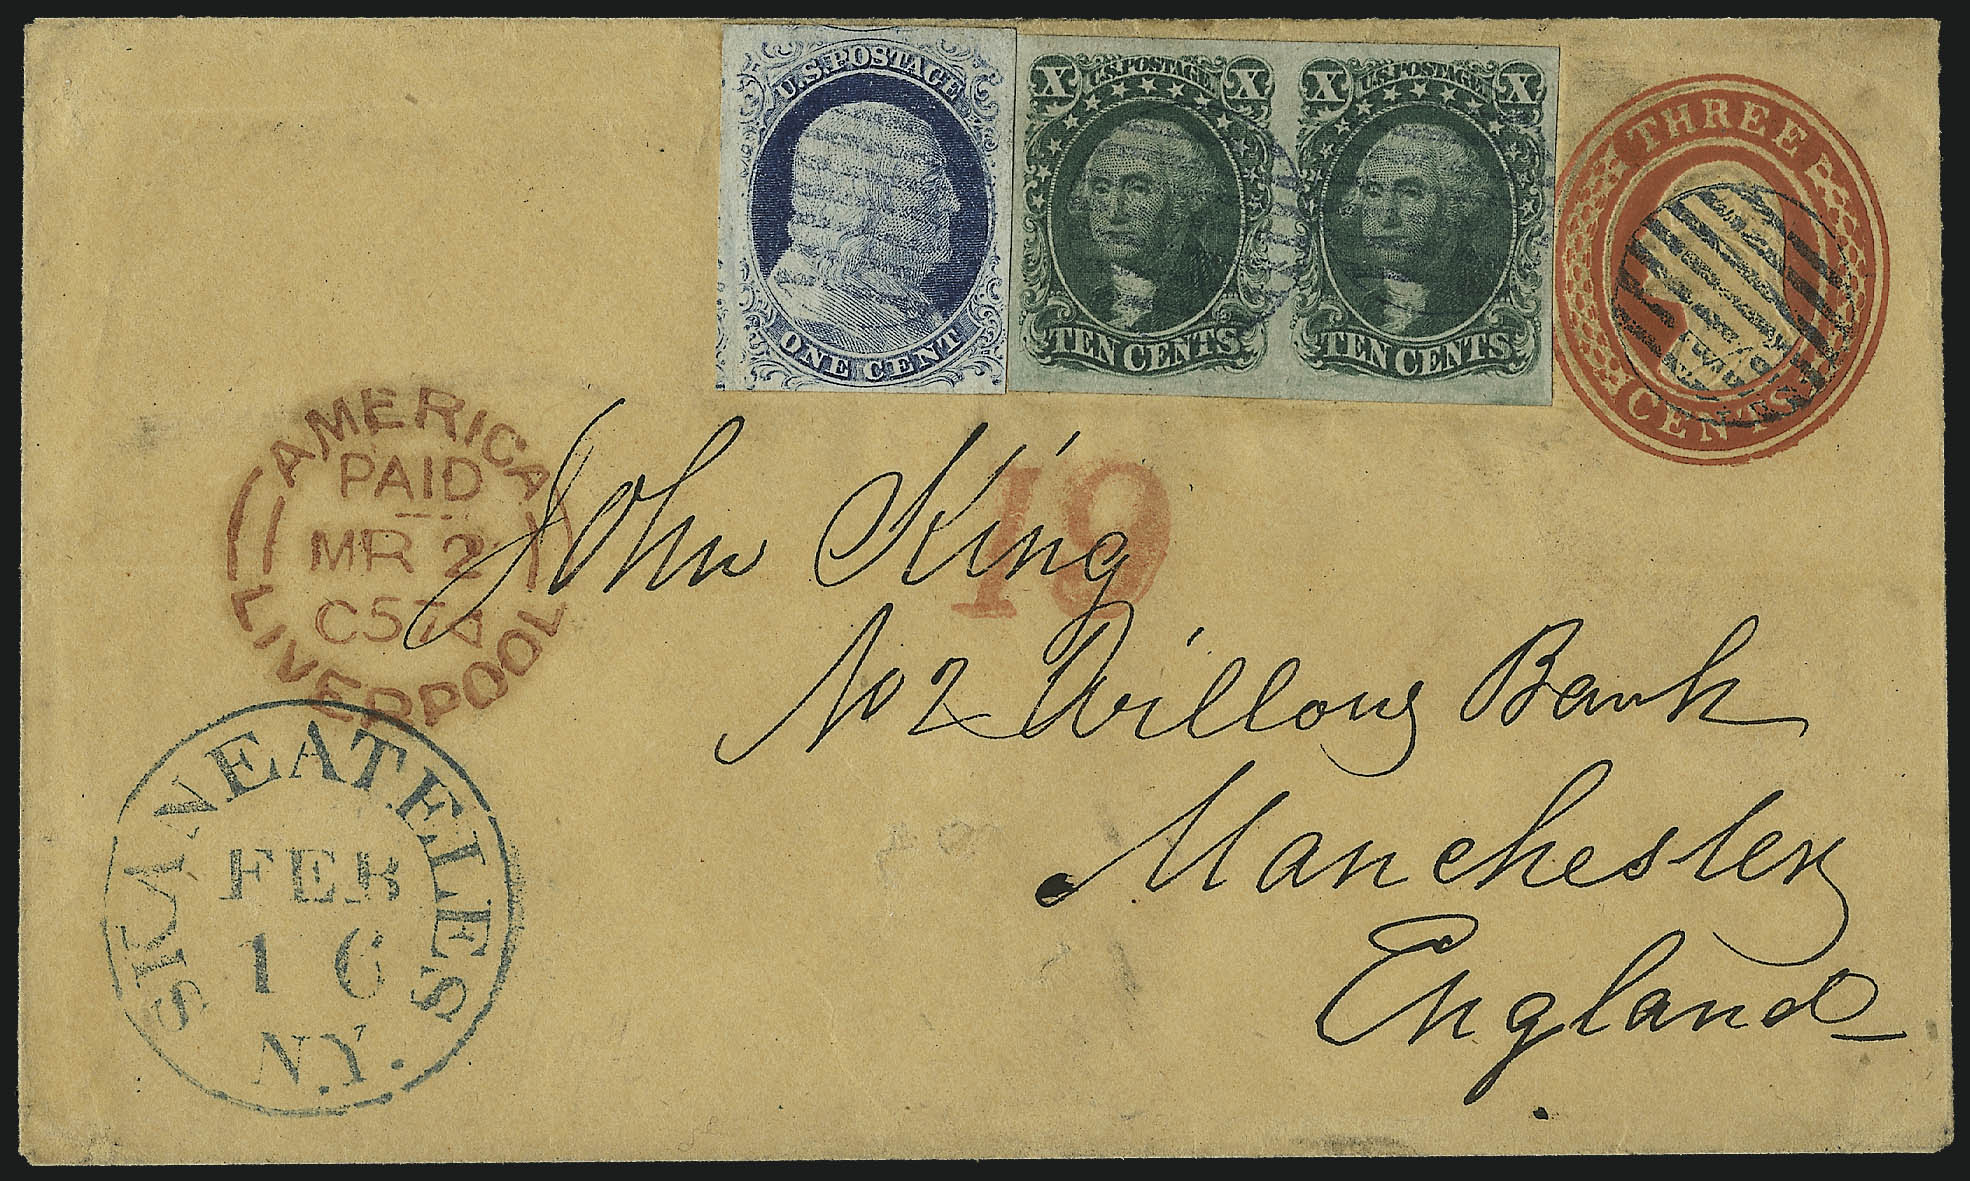 U.S. POSTAGE
ONE CENT
X U.S. POSTAGE X
TEN CENTS
X U.S. POSTAGE X
TEN CENTS
THREE
CENTS
AMERICA
PAID
MR 2
C57A
LIVERPOOL
19
John King
No 2 Willows Bank
Manchester
England
SKANEATELES
FEB
16
N.Y.